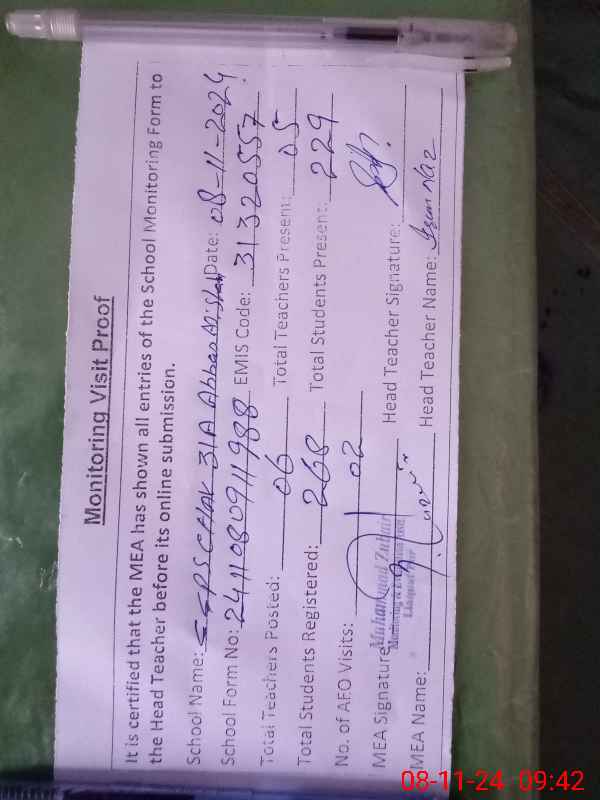 Monitoring Visit Proof
It is certified that the MEA has shown all entries of the School Monitoring Form to
the Head Teacher before its online submission.
School Name: GGPS CHAK 31A Abbas Ali Shah Date: 08-11-2024
School Form No: 241108091988 EMIS Code: 31320557
Total Teachers Posted: 06 Total Teachers Present: 05
Total Students Registered: 268 Total Students Present: 229
No. of AEO Visits: 02
MEA Signature Head Teacher Signature:
Muhammad Zubair
Monitoring & Evaluation
MEA Name: Head Teacher Name: Naz
08-11-24 09:42